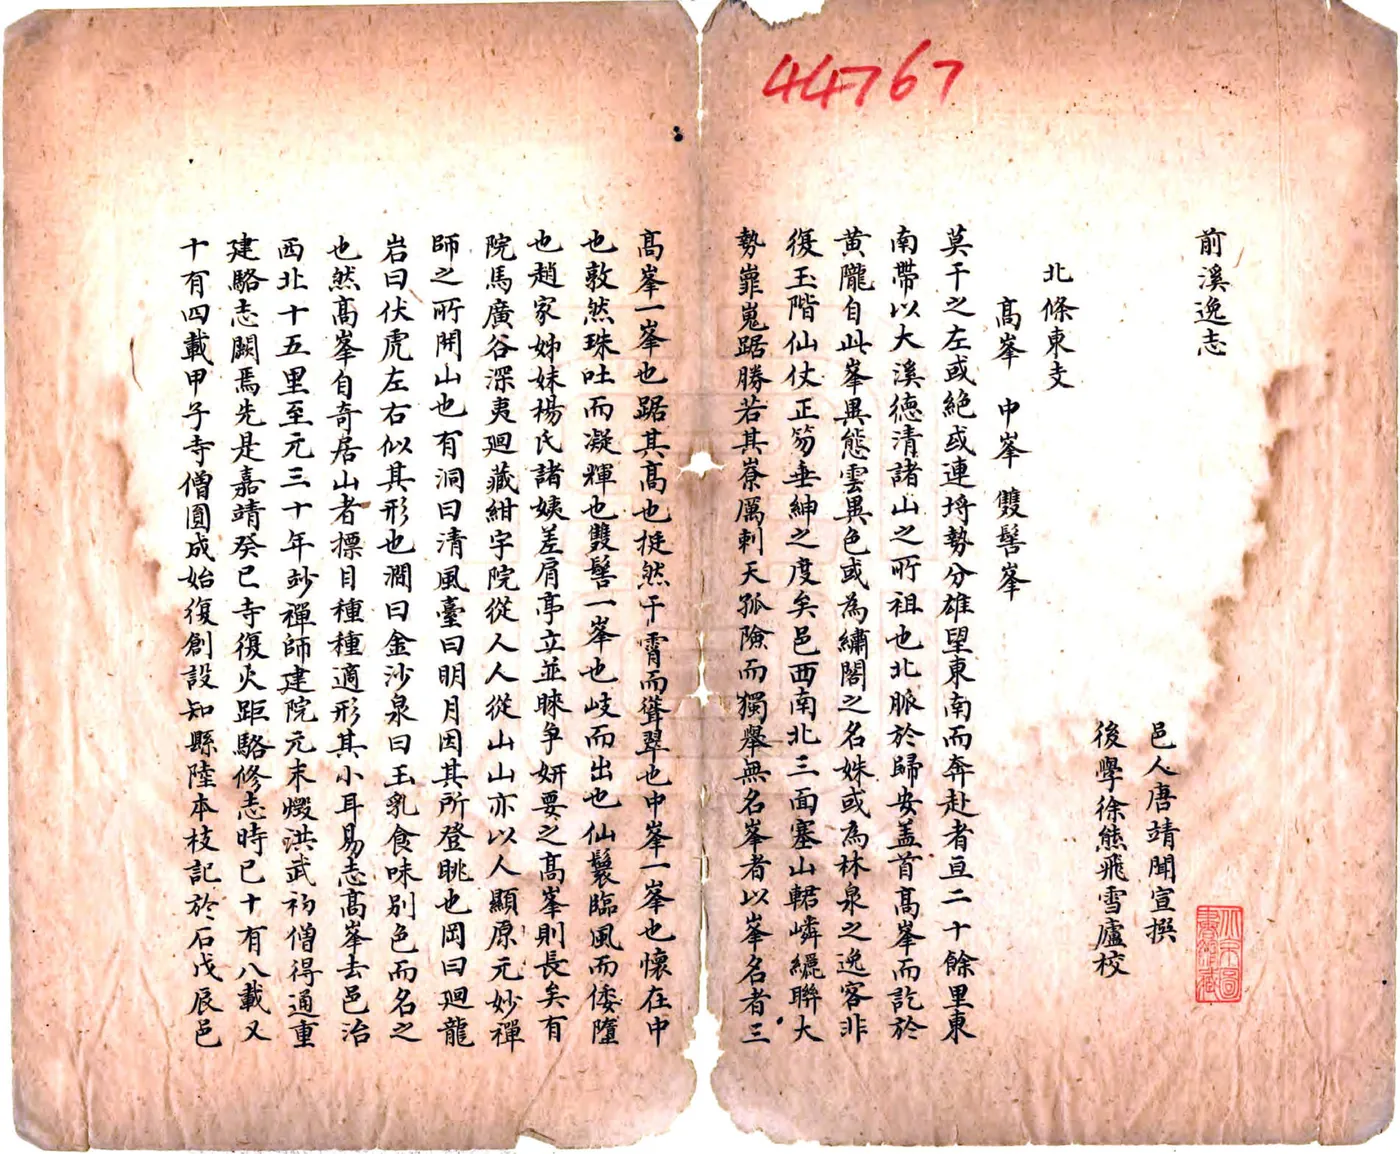 44767
前溪逸志
邑人唐靖聞宣撰
後學徐熊飛雪廬校
北條東支
高峯　中峯　雙髻峯
莫干之左或絶或連埒勢分雄望東南而奔赴者亘二十餘里東
南帶以大溪德清諸山之所祖也北脈於歸安盖首高峯而訖於
黄隴自此峯異態雲異色或為繡閣之名姝或為林泉之逸客非
復玉階仙仗正笏垂紳之度矣邑西南北三面塞山轄嶙纚聯大
勢嶵嵬踞勝若其嶚厲刺天孤險而獨舉無名峯者以峯名者三
高峯一峯也踞其高也挺然干霄而聳翠也中峯一峯也懷在中
也敦然珠吐而凝輝也雙髻一峯也岐而出也仙鬟臨風而倭墮
也趙家姊妹楊氏諸姨差肩亭立並睞爭妍要之高峯則長矣有
院馬廣谷深夷廻藏紺宇院從人人從山山亦以人顯原元妙禪
師之所開山也有洞曰清風臺曰明月因其所登眺也岡曰廻龍
岩曰伏虎左右似其形也澗曰金沙泉曰玉乳食味別色而名之
也然高峯自奇居山者摽目種種適形其小耳易志高峯去邑治
西北十五里至元三十年玅禪師建院元末燬洪武初僧得通重
建駱志闕焉先是嘉靖癸巳寺復火距駱修志時已十有八載又
十有四載甲子寺僧圓成始復創設知縣陸本枝記於石戊辰邑